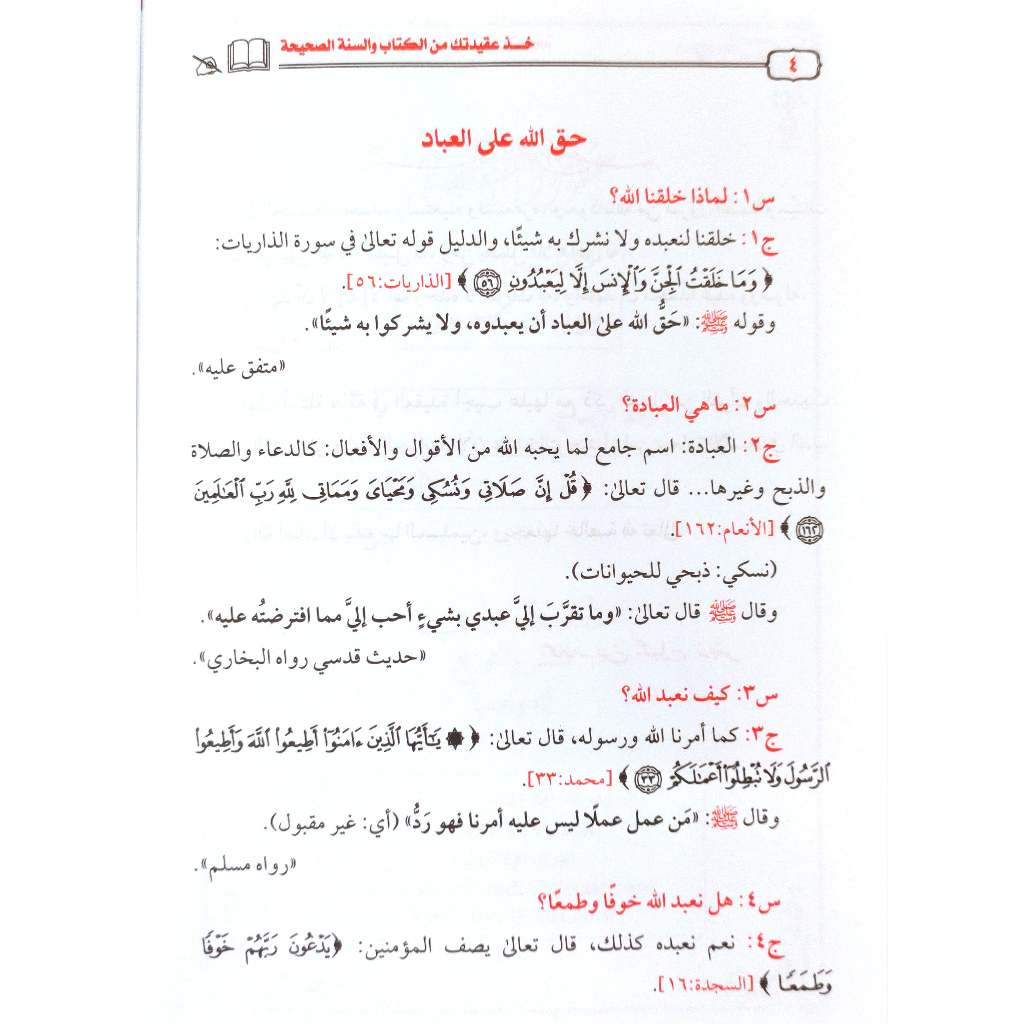 خذ عقيدتك من الكتاب والسنة الصحيحة
٤
حق الله على العباد
س١: لماذا خلقنا الله؟
ج١: خلقنا لنعبده ولا نشرك به شيئًا، والدليل قوله تعالىٰ في سورة الذاريات:
﴿ وَمَا خَلَقْتُ ٱلْجِنَّ وَٱلْإِنسَ إِلَّا لِيَعْبُدُونِ ۝٥٦ ﴾ [الذاريات:٥٦].
وقوله ﷺ: «حَقُّ الله علىٰ العباد أن يعبدوه، ولا يشركوا به شيئًا».
«متفق عليه».
س٢: ما هي العبادة؟
ج٢: العبادة: اسم جامع لما يحبه الله من الأقوال والأفعال: كالدعاء والصلاة
والذبح وغيرها... قال تعالىٰ: ﴿ قُلْ إِنَّ صَلَاتِي وَنُسُكِي وَمَحْيَايَ وَمَمَاتِي لِلَّهِ رَبِّ ٱلْعَالَمِينَ
۝١٦٢ ﴾ [الأنعام:١٦٢].
(نسكي: ذبحي للحيوانات).
وقال ﷺ قال تعالىٰ: «وما تقرَّبَ إليَّ عبدي بشيءٍ أحب إليَّ مما افترضتُه عليه».
«حديث قدسي رواه البخاري».
س٣: كيف نعبد الله؟
ج٣: كما أمرنا الله ورسوله، قال تعالىٰ: ﴿ ۞ يَٰٓأَيُّهَا ٱلَّذِينَ ءَامَنُوٓا۟ أَطِيعُوا۟ ٱللَّهَ وَأَطِيعُوا۟
ٱلرَّسُولَ وَلَا تُبْطِلُوٓا۟ أَعْمَٰلَكُمْ ۝٣٣ ﴾ [محمد:٣٣].
وقال ﷺ: «مَن عمل عملًا ليس عليه أمرنا فهو رَدٌّ» (أي: غير مقبول).
«رواه مسلم».
س٤: هل نعبد الله خوفًا وطمعًا؟
ج٤: نعم نعبده كذلك، قال تعالىٰ يصف المؤمنين: ﴿يَدْعُونَ رَبَّهُمْ خَوْفًا
وَطَمَعًا ﴾ [السجدة:١٦].